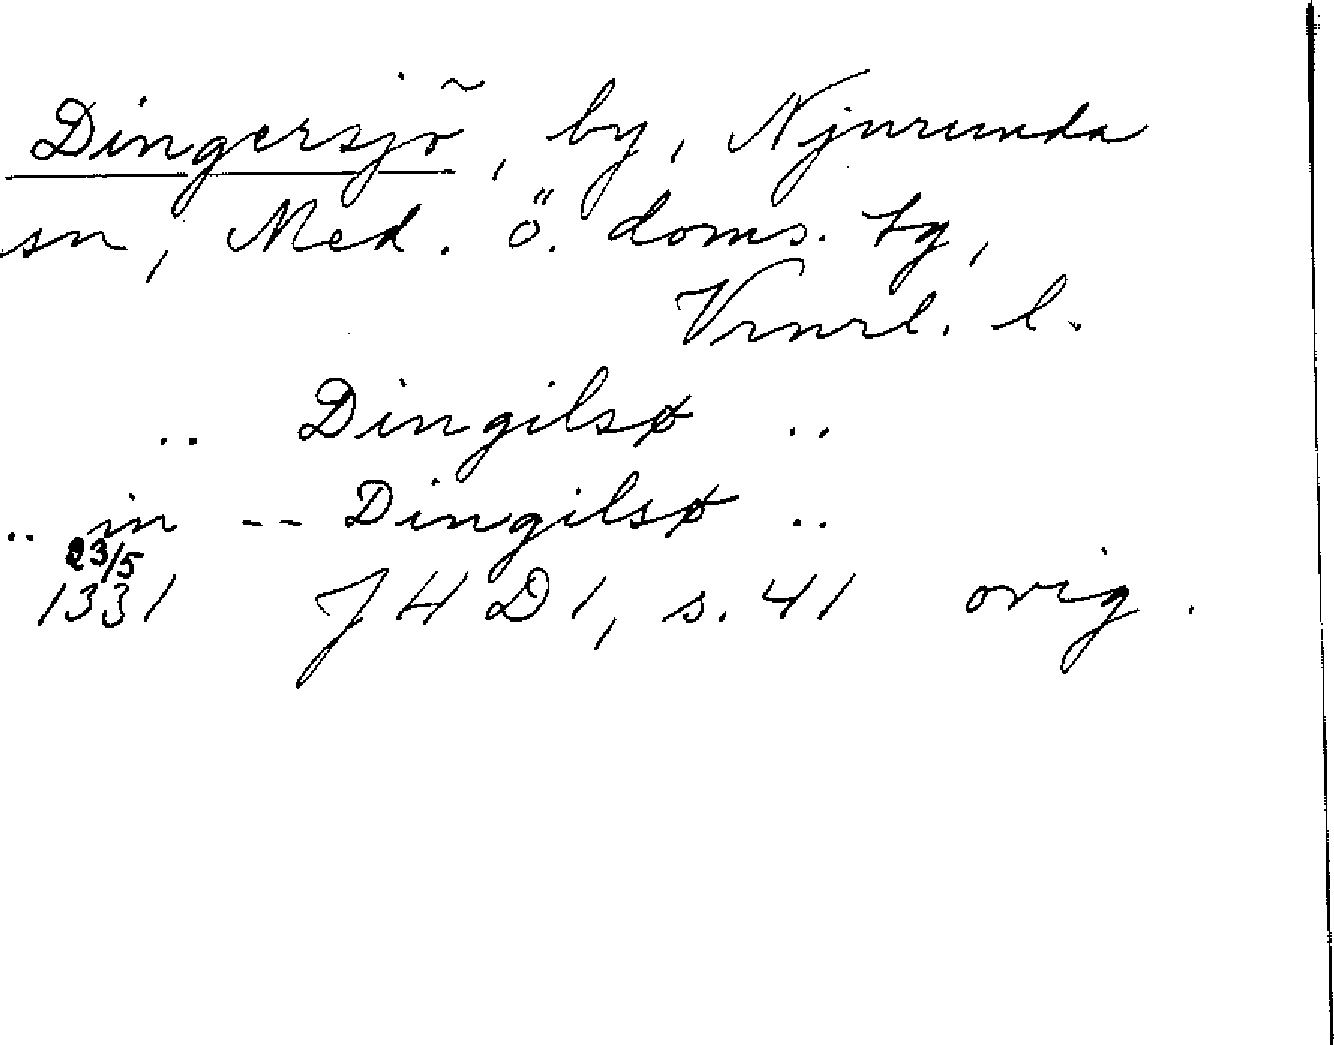 Dingersjö, by, Njurunda
sn, Med. ö. doms. tg,
Vrnrl. l.
.. Dingilsø ..
.. in -- Dingilsø ..
23/5
1331 JHD 1, s. 41 orig.